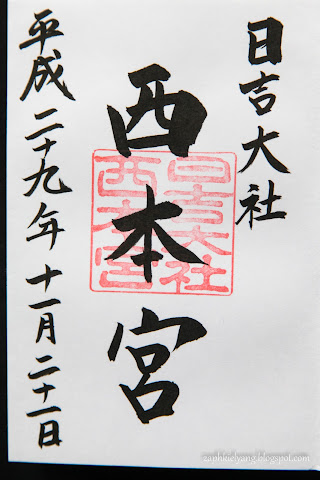 日吉大社
西本宮
日吉大社
西本宮
平成二十九年十一月二十一日
zaphkielyang.blogspot.com